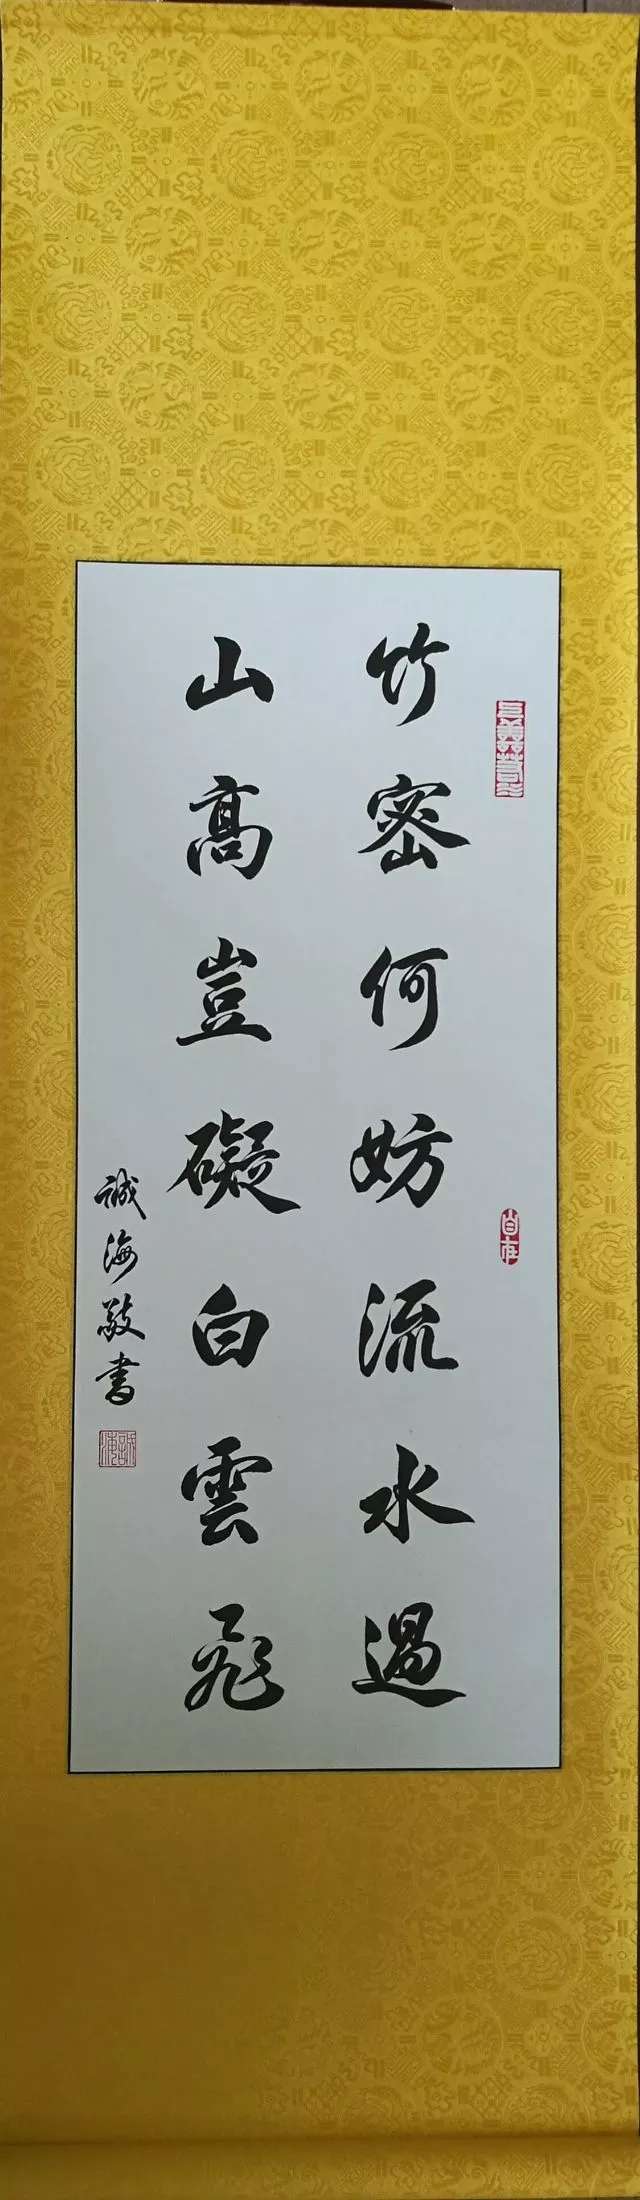 竹密何妨流水過
山高豈礙白雲飛
誠海敬書
自在
誠海